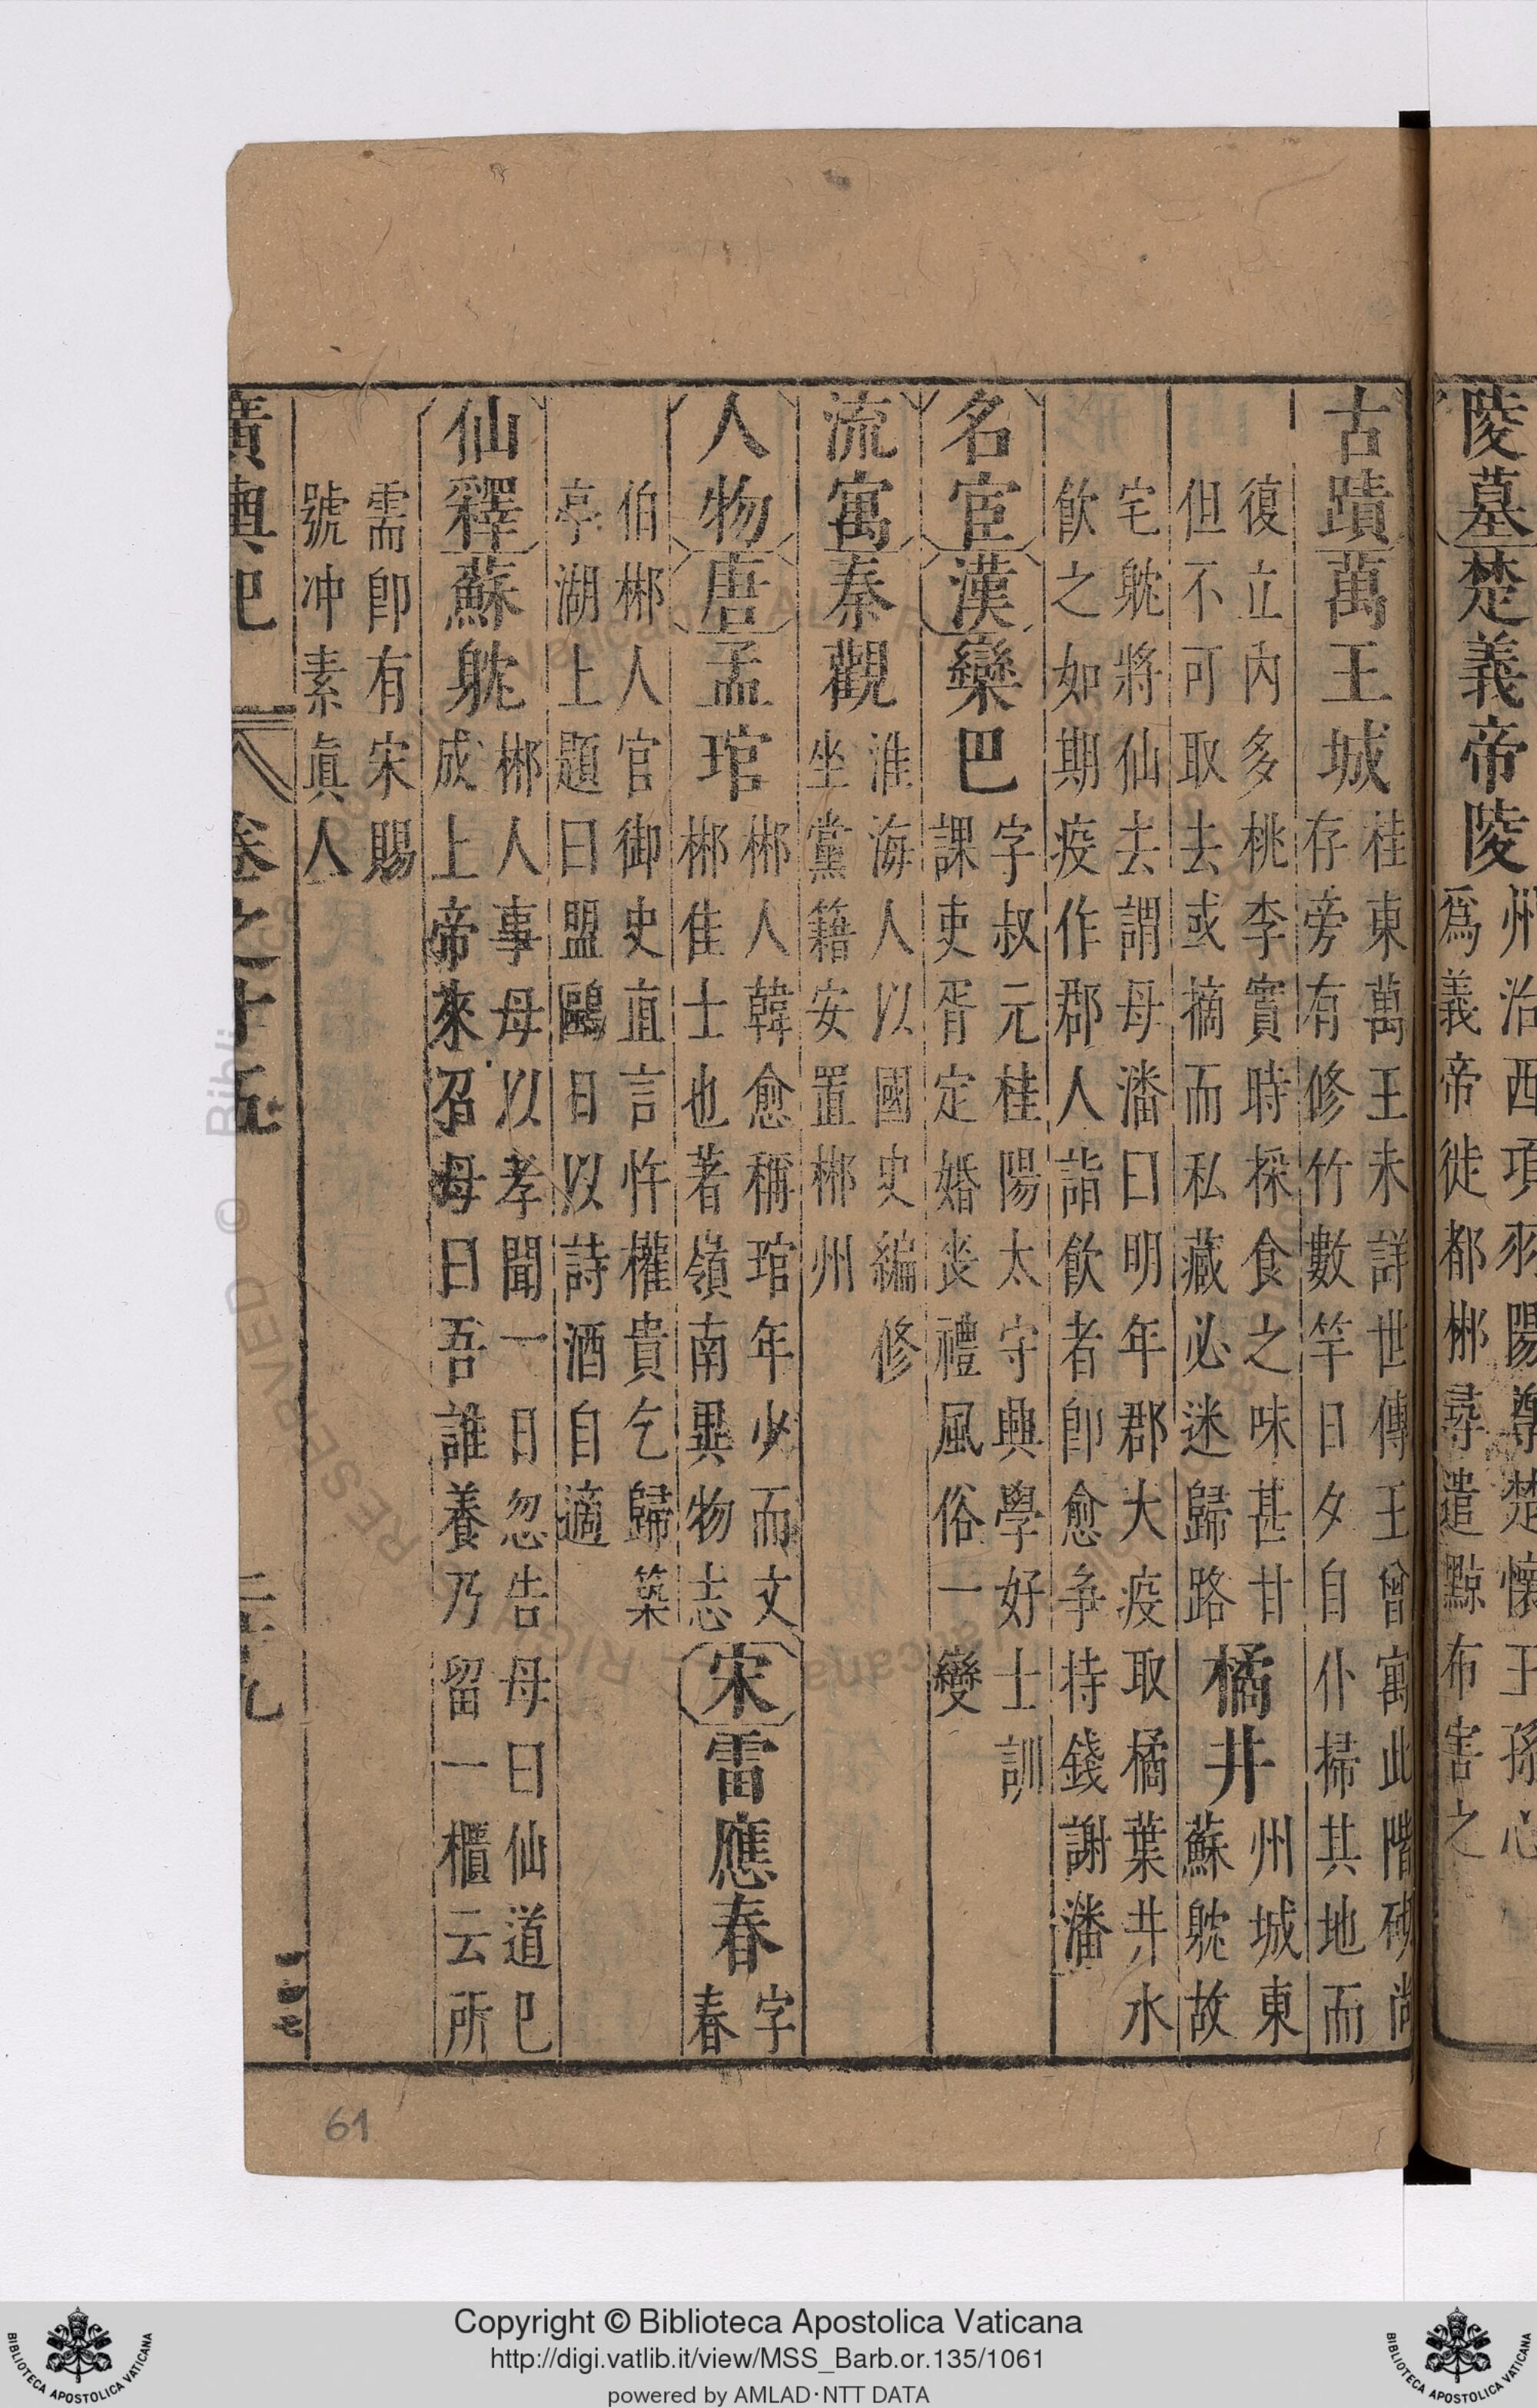 陵墓楚義帝陵
州治西項羽陽尊楚懷王孫心
爲義帝徙都郴尋遣黥布害之
古蹟萬王城
桂東萬王未詳世傳王曾寓此階砌尚
存旁有修竹數竿日夕自仆掃其地而
復立內多桃李實時採食之味甚甘
但不可取去或摘而私藏必迷歸路
橘井
州城東
蘇躭故
宅躭將仙去謂母潘曰明年郡大疫取橘葉井水
飲之如期疫作郡人詣飲者卽愈爭持錢謝潘
名宦漢欒巴
字叔元桂陽太守興學好士訓
課吏胥定婚喪禮風俗一變
流寓秦觀
淮海人以國史編修
坐黨籍安置郴州
人物唐孟琯
郴人韓愈稱琯年少而文
郴隹士也著嶺南異物志
宋雷應春
字
春
伯郴人官御史直言忤權貴乞歸築
亭湖上題曰盟鷗日以詩酒自適
仙釋蘇躭
郴人事母以孝聞一日忽告母曰仙道已
成上帝來召母曰吾誰養乃留一櫃云所
需卽有宋賜
號冲素眞人
廣輿記
卷之十五
二十九
61
Copyright © Biblioteca Apostolica Vaticana
http://digi.vatlib.it/view/MSS_Barb.or.135/1061
powered by AMLAD·NTT DATA
BIBLIOTECA APOSTOLICA VATICANA
BIBLIOTECA APOSTOLICA VATICANA